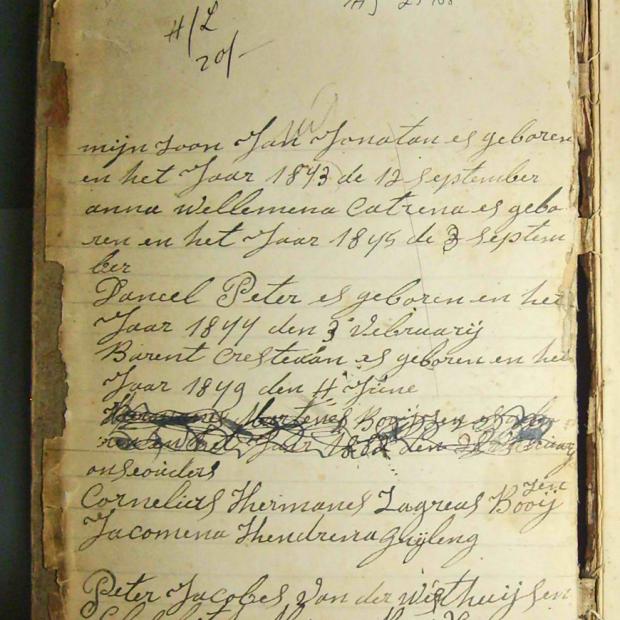 H/L
20/-
mijn soon Jan Jonatan es geboren
en het Jaar 1843 de 12 september
anna wellemena Catrena es gebo
ren en het Jaar 1845 de 3 septem
ber
Daneel Peter es geboren en het
Jaar 1847 den 3 Vebruarij
Barent Cresteaan es geboren en het
Jaar 1849 den 4 Júne
Hermanes Martenes Booijsen es
en het Jaar 1882 den
onseouders
Cornelies Hermanes Lagreas Booij
sen
Jacomena Hendrena gnijleng
Peter Jacobes Van der Westhuijsen